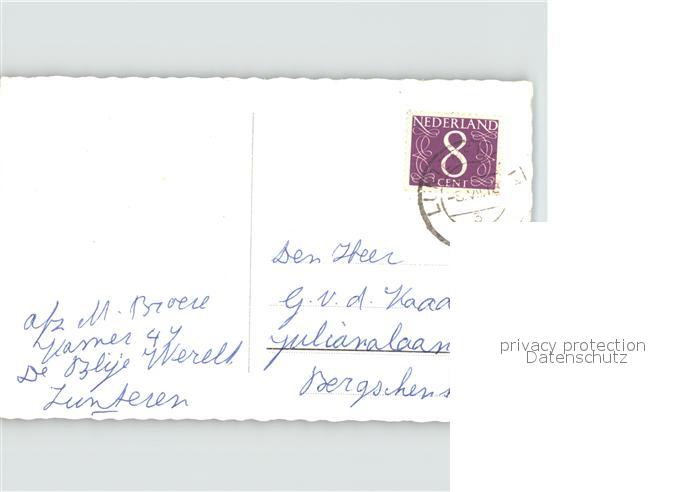 NEDERLAND
8
CENT
Den Heer
G. v. d. Kaa
Julianalaan
Bergschens
afz M. Broere
Kamer 44
De Blije Werelt
Lunteren
privacy protection
Datenschutz